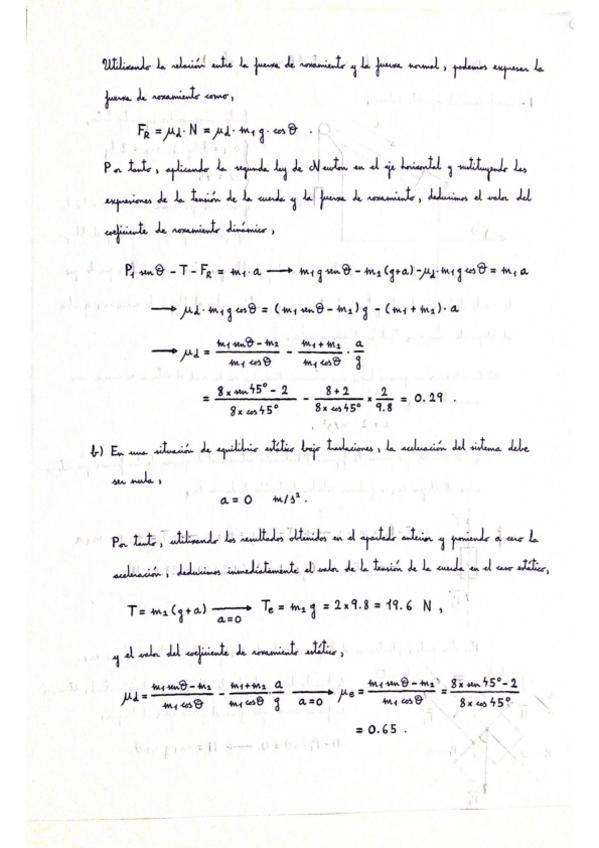 Utilizando la relación entre la fuerza de rozamiento y la fuerza normal, podemos expresar la
fuerza de rozamiento como,
F_R = μ_d · N = μ_d · m₁ g · cos θ .
Por tanto, aplicando la segunda ley de Newton en el eje horizontal y sustituyendo las
expresiones de la tensión de la cuerda y la fuerza de rozamiento, deducimos el valor del
coeficiente de rozamiento dinámico,
P₁ sen θ - T - F_R = m₁ · a ⟶ m₁ g sen θ - m₂ (g+a) - μ_d · m₁ g cos θ = m₁ a
⟶ μ_d · m₁ g cos θ = (m₁ sen θ - m₂) g - (m₁ + m₂) · a
⟶ μ_d = (m₁ sen θ - m₂)/(m₁ cos θ) - (m₁ + m₂)/(m₁ cos θ) · a/g
= (8 x sen 45° - 2)/(8 x cos 45°) - (8 + 2)/(8 x cos 45°) x 2/9.8 = 0.29 .
b) En una situación de equilibrio estático bajo traslaciones, la aceleración del sistema debe
ser nula,
a = 0 m/s² .
Por tanto, utilizando los resultados obtenidos en el apartado anterior y poniendo a cero la
aceleración, deducimos inmediatamente el valor de la tensión de la cuerda en el caso estático,
T = m₂ (g+a) ⟶ a=0 T_e = m₂ g = 2 x 9.8 = 19.6 N ,
y el valor del coeficiente de rozamiento estático,
μ_d = (m₁ sen θ - m₂)/(m₁ cos θ) - (m₁ + m₂)/(m₁ cos θ) · a/g ⟶ a=0 μ_e = (m₁ sen θ - m₂)/(m₁ cos θ) = (8 x sen 45° - 2)/(8 x cos 45°)
= 0.65 .